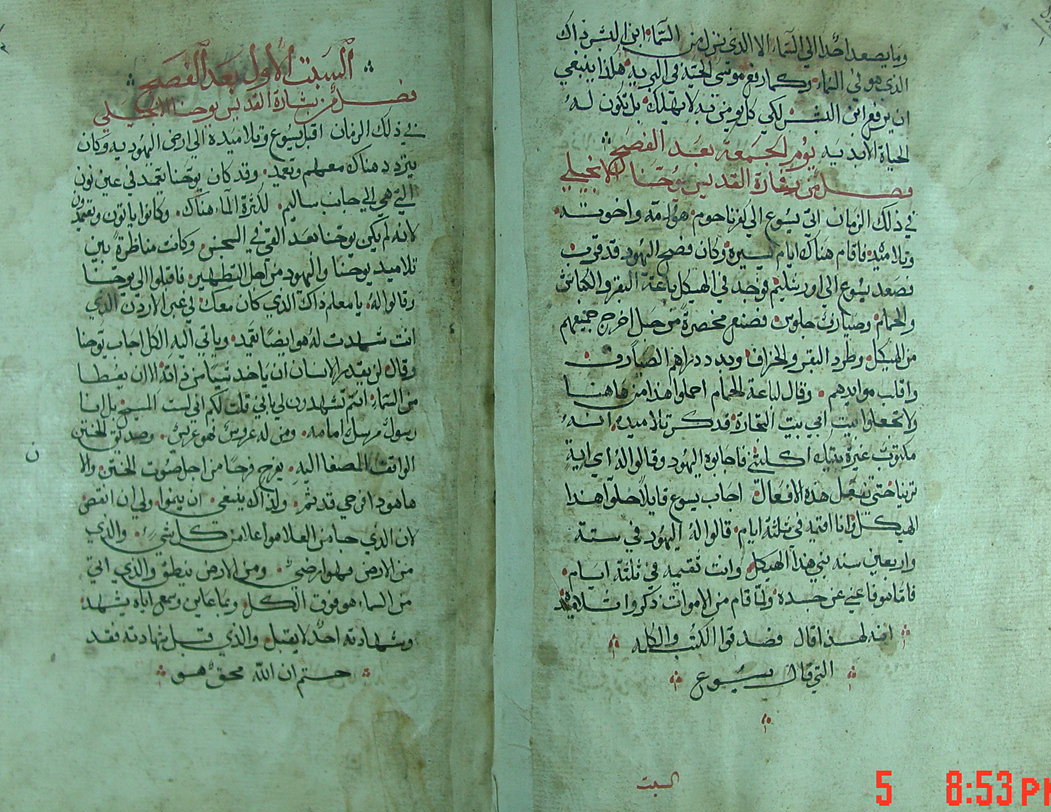 وما يصعد احدٌ الي السماء الا الذي نزل من السماء ابن البشر ذاك
الذي هو في السماء وكما رفع موسى الحيّة في البريه هكذا ينبغي
ان يرفع ابن البشر لكي كل يومن به لا يهلك بل تكون له
الحياة الابديه يوم الجمعة بعد الفصح
فصل من بشارة القديس يوحنا الانجيلي
في ذلك الزمان اتي يسوع الي كفرناحوم هو وامه واخوته
وتلاميذه فاقام هناك ايام يسيرة وكان فصح اليهود قد قرب
فصعد يسوع الى اورشليم فوجد في الهيكل باعة البقر والكباش
والحمام وصيارف جلوس فصنع مخصرة من حبل اخرج جميعهم
من الهيكل وطرد البقر والخراف وبدد دراهم الصيارف
واقلب موايدهم وقال لباعة الحمام احملوا هذا من هاهنا
ولا تجعلوا بيت ابي بيت التجارة فدكر تلاميده انه
مكتوب غيرة بيتك اكلتني فاجابوه اليهود وقالوا له اي اية
ترينا حتى تفعل هذه الافعال اجاب يسوع قايلا حلوا هذا
الهيكل وانا اقيمه في ثلثة ايام قالوا له اليهود في ستة
واربعين سنه بني هذا الهيكل وانت تقيمه في ثلثة ايام
فاما هو فاعني عن جسده ولما قام من الاموات ذكروا تلاميذه
انه لهذا قال فصدقوا الكتب والكلمه
التي قال يسوع
السبت
السبت الاول بعد الفصح
فصل من بشارة القديس يوحنا الانجيلي
في ذلك الزمان اقبل يسوع وتلاميده الى ارض اليهوديه وكان
يتردد هناك معهم ويعمد وقد كان يوحنا يعمد في عين نون
التي هي الى جانب ساليم لكثرة الماء هناك وكانوا ياتون ويعتمدون
لانه لم يكن يوحنا بعد القي في السجن وكانت مناظرة بين
تلاميد يوحنا واليهود من اجل التطهير فاقبلوا الى يوحنا
وقالوا له يا معلم ذاك الذي كان معك في عبر الاردن الذي
انت شهدت له هو ايضًا يعمد وياتي اليه الكل اجاب يوحنا
وقال لن يقدر الانسان ان ياخد شيا من ذاته الا ان يعطا
من السماء انتم تشهدون لي باني قلت لكم اني لست المسيح بل انا
رسول مرسل امامه ومن له عروس فهو عريس وصديق الختن
الواقف المصغا اليه يفرح فرحًا من اجل صوت الختن والا
هاهوذا فرحي قد تم ولذاك ينبغي ان ينموا ولي ان انقص
لان الذي جا من العلا هو اعلا من كل شي والذي
من الارض فهو ارضي ومن الارض ينطق والذي اتي
من السماء هو فوق الكل وبما عاين وسمع اياه يشهد
وشهادته احدٌ لا يقبل والذي قبل شهادته فقد
ختم ان الله محق هو
ن
5 8:53